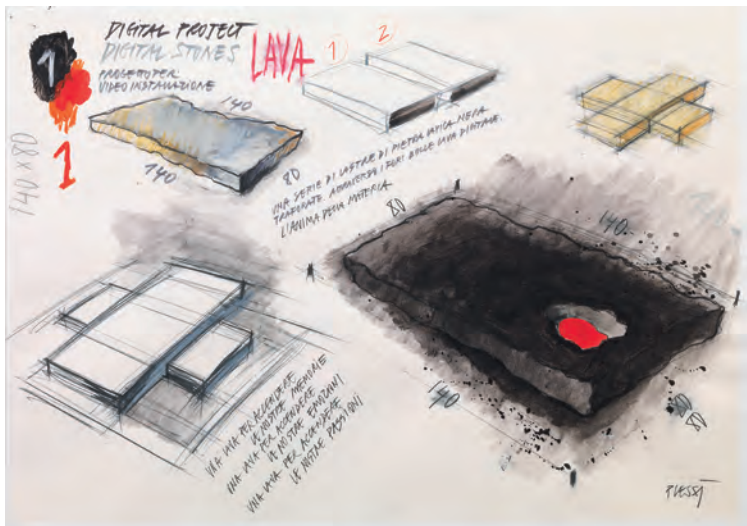 1
DIGITAL PROJECT
DIGITAL STONES
PROGETTO PER
VIDEO INSTALLAZIONE
LAVA
1
2
1
140 x 80
140
140
80
UNA SERIE DI LASTRE DI PIETRA LAVICA NERA
TRAFORATE. ATTRAVERSO I FORI DELLE LAVA DIGITALE
L'ANIMA DELLA MATERIA
80
140
140
80
80
UNA LAVA PER ACCENDERE
LE NOSTRE MEMORIE
UNA LAVA PER ACCENDERE
LE NOSTRE EMOZIONI
UNA LAVA PER ACCENDERE
LE NOSTRE PASSIONI
PLESSI